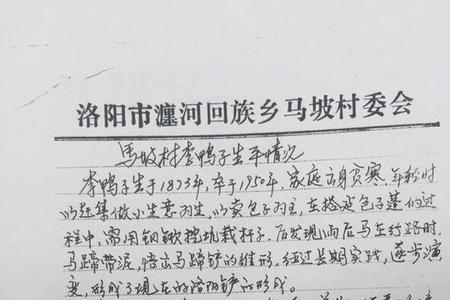 洛阳市瀍河回族乡马坡村委会
马坡村李鸭子生平情况
李鸭子生于1873年,卒于1950年,家庭出身贫寒,年轻时
以赶集做小生意为生,以卖包子为主,在搭建包子蓬的过
程中,需用钢锹挖坑栽杆子,后发现雨后马车行路时,
马蹄带泥,悟出马蹄铲的雏形,经过长期实践,逐步演
变,形成了现在的洛阳铲的形成。